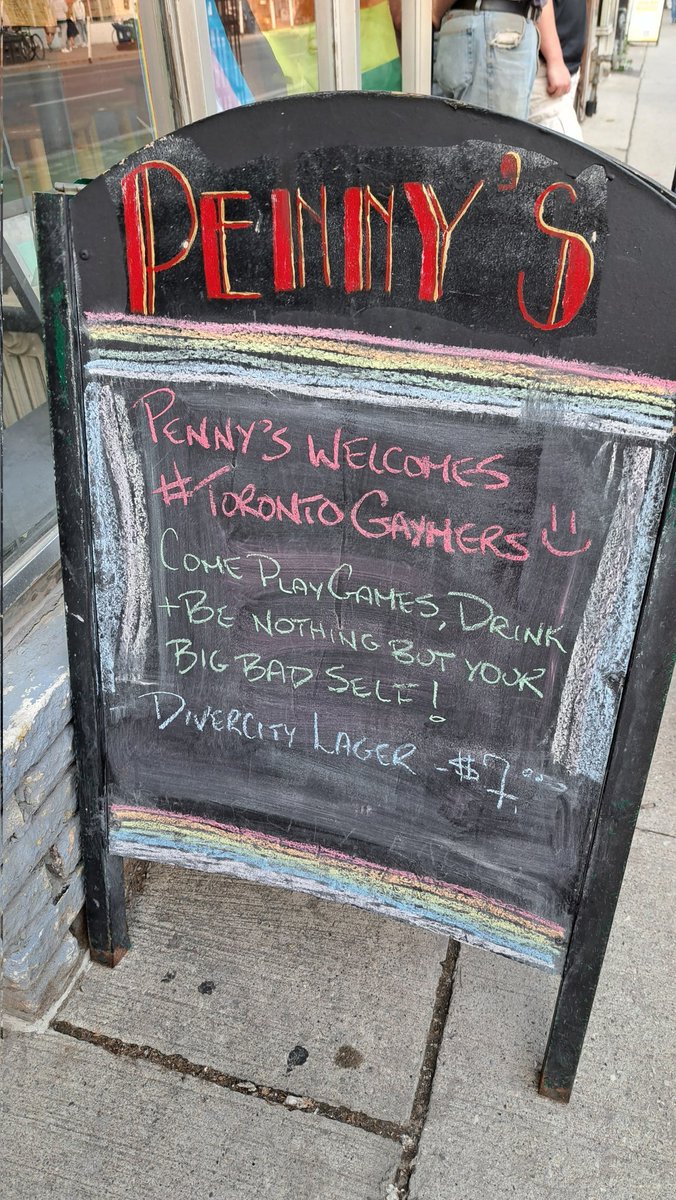 PENNY'S
PENNY'S WELCOMES
#TORONTOGAYMERS :)
COME PLAY GAMES, DRINK
+ BE NOTHING BUT YOUR
BIG BAD SELF!
DIVERCITY LAGER - $7.00